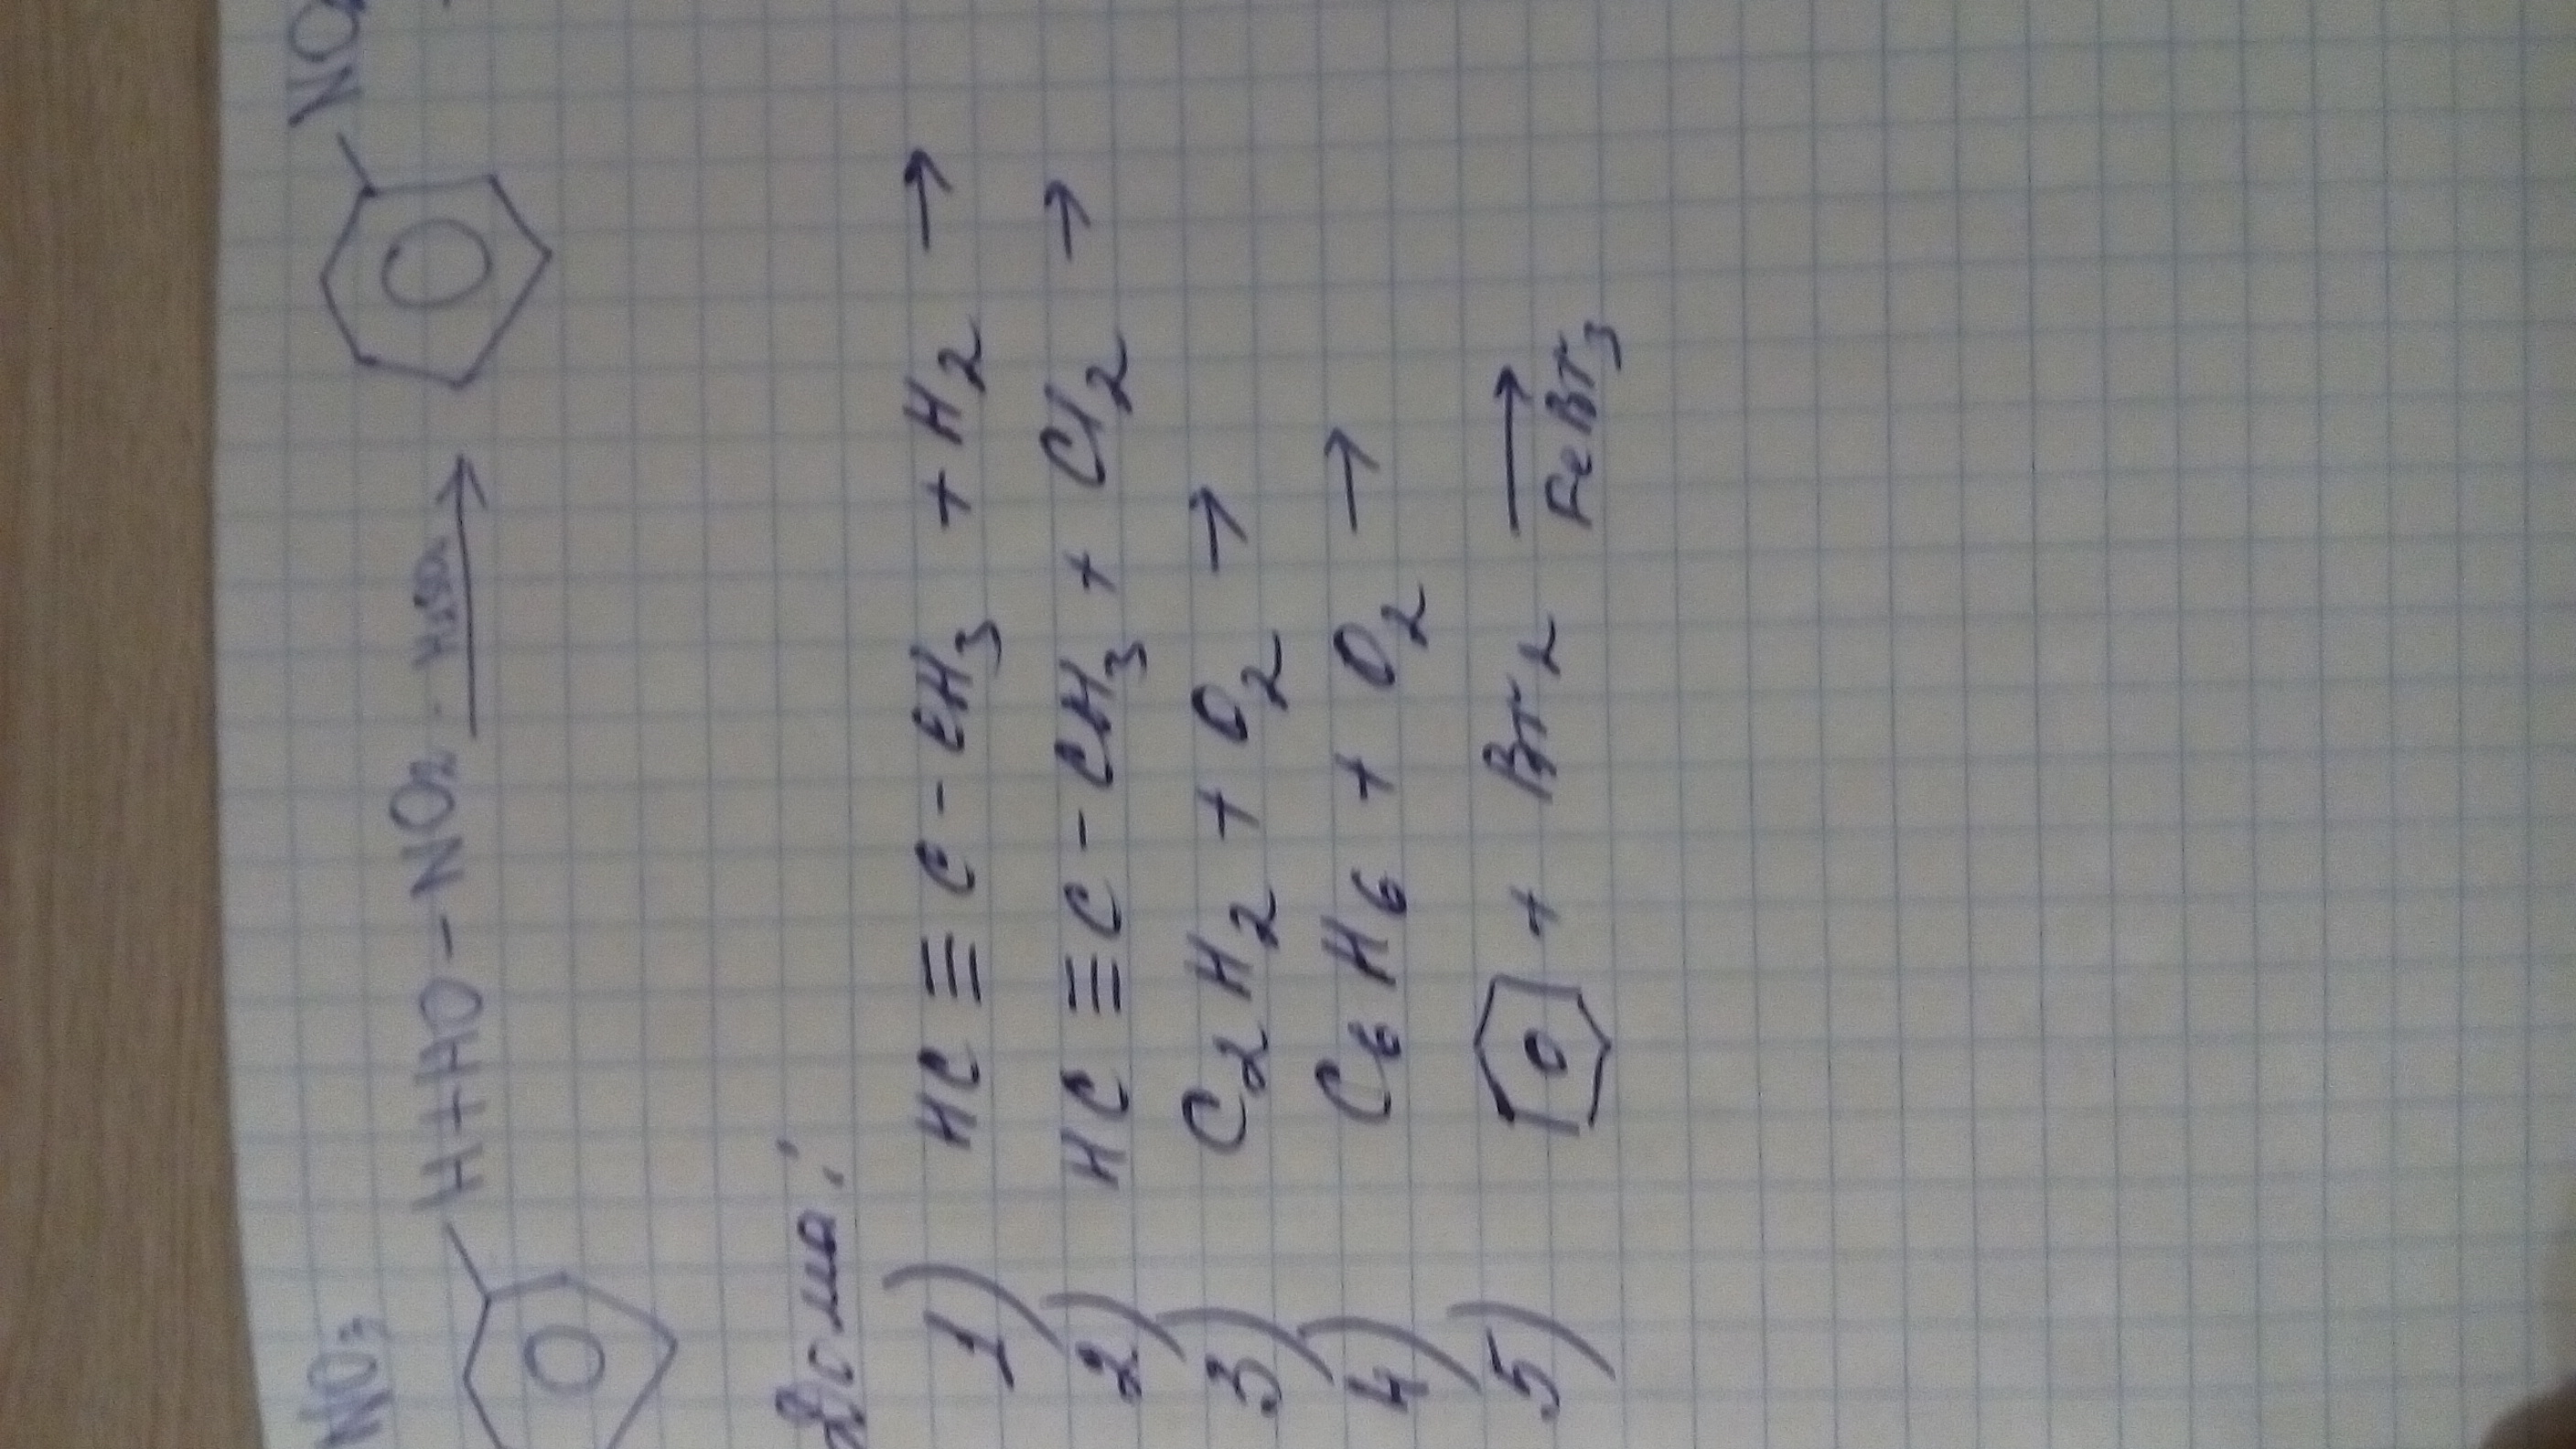 NO₃
H + HO - NO₂ H₂SO₄ → NO₂
Дома:
1) HC ≡ C - CH₃ + H₂ →
2) HC ≡ C - CH₃ + Cl₂ →
3) C₂H₂ + O₂ →
4) C₆H₆ + O₂ →
5) + Br₂ → FeBr₃